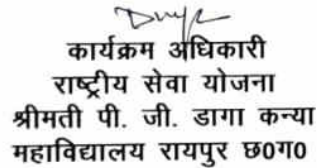 कार्यक्रम अधिकारी
राष्ट्रीय सेवा योजना
श्रीमती पी. जी. डागा कन्या
महाविद्यालय रायपुर छ0ग0